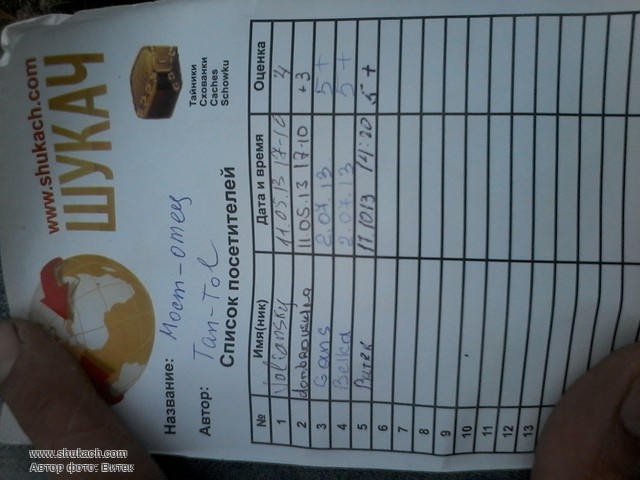 www.shukach.com
ШУКАЧ
Тайники
Схованки
Caches
Schowku
Название: Мост-отец
Автор: Tan-Tol
Список посетителей
№ Имя(ник) Дата и время Оценка
1 Voliansky 11.05.13 17-10
2 11 05 13 17-10 +3
3 Gans 2.07.13 5+
4 Belka 2.07.13 5+
5 17.10.13 14:20 5+
6
7
8
9
10
11
12
13
www.shukach.com
Автор фото: Витек